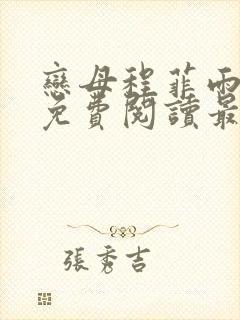 戀母程菲雨
免費閱讀最
張秀吉